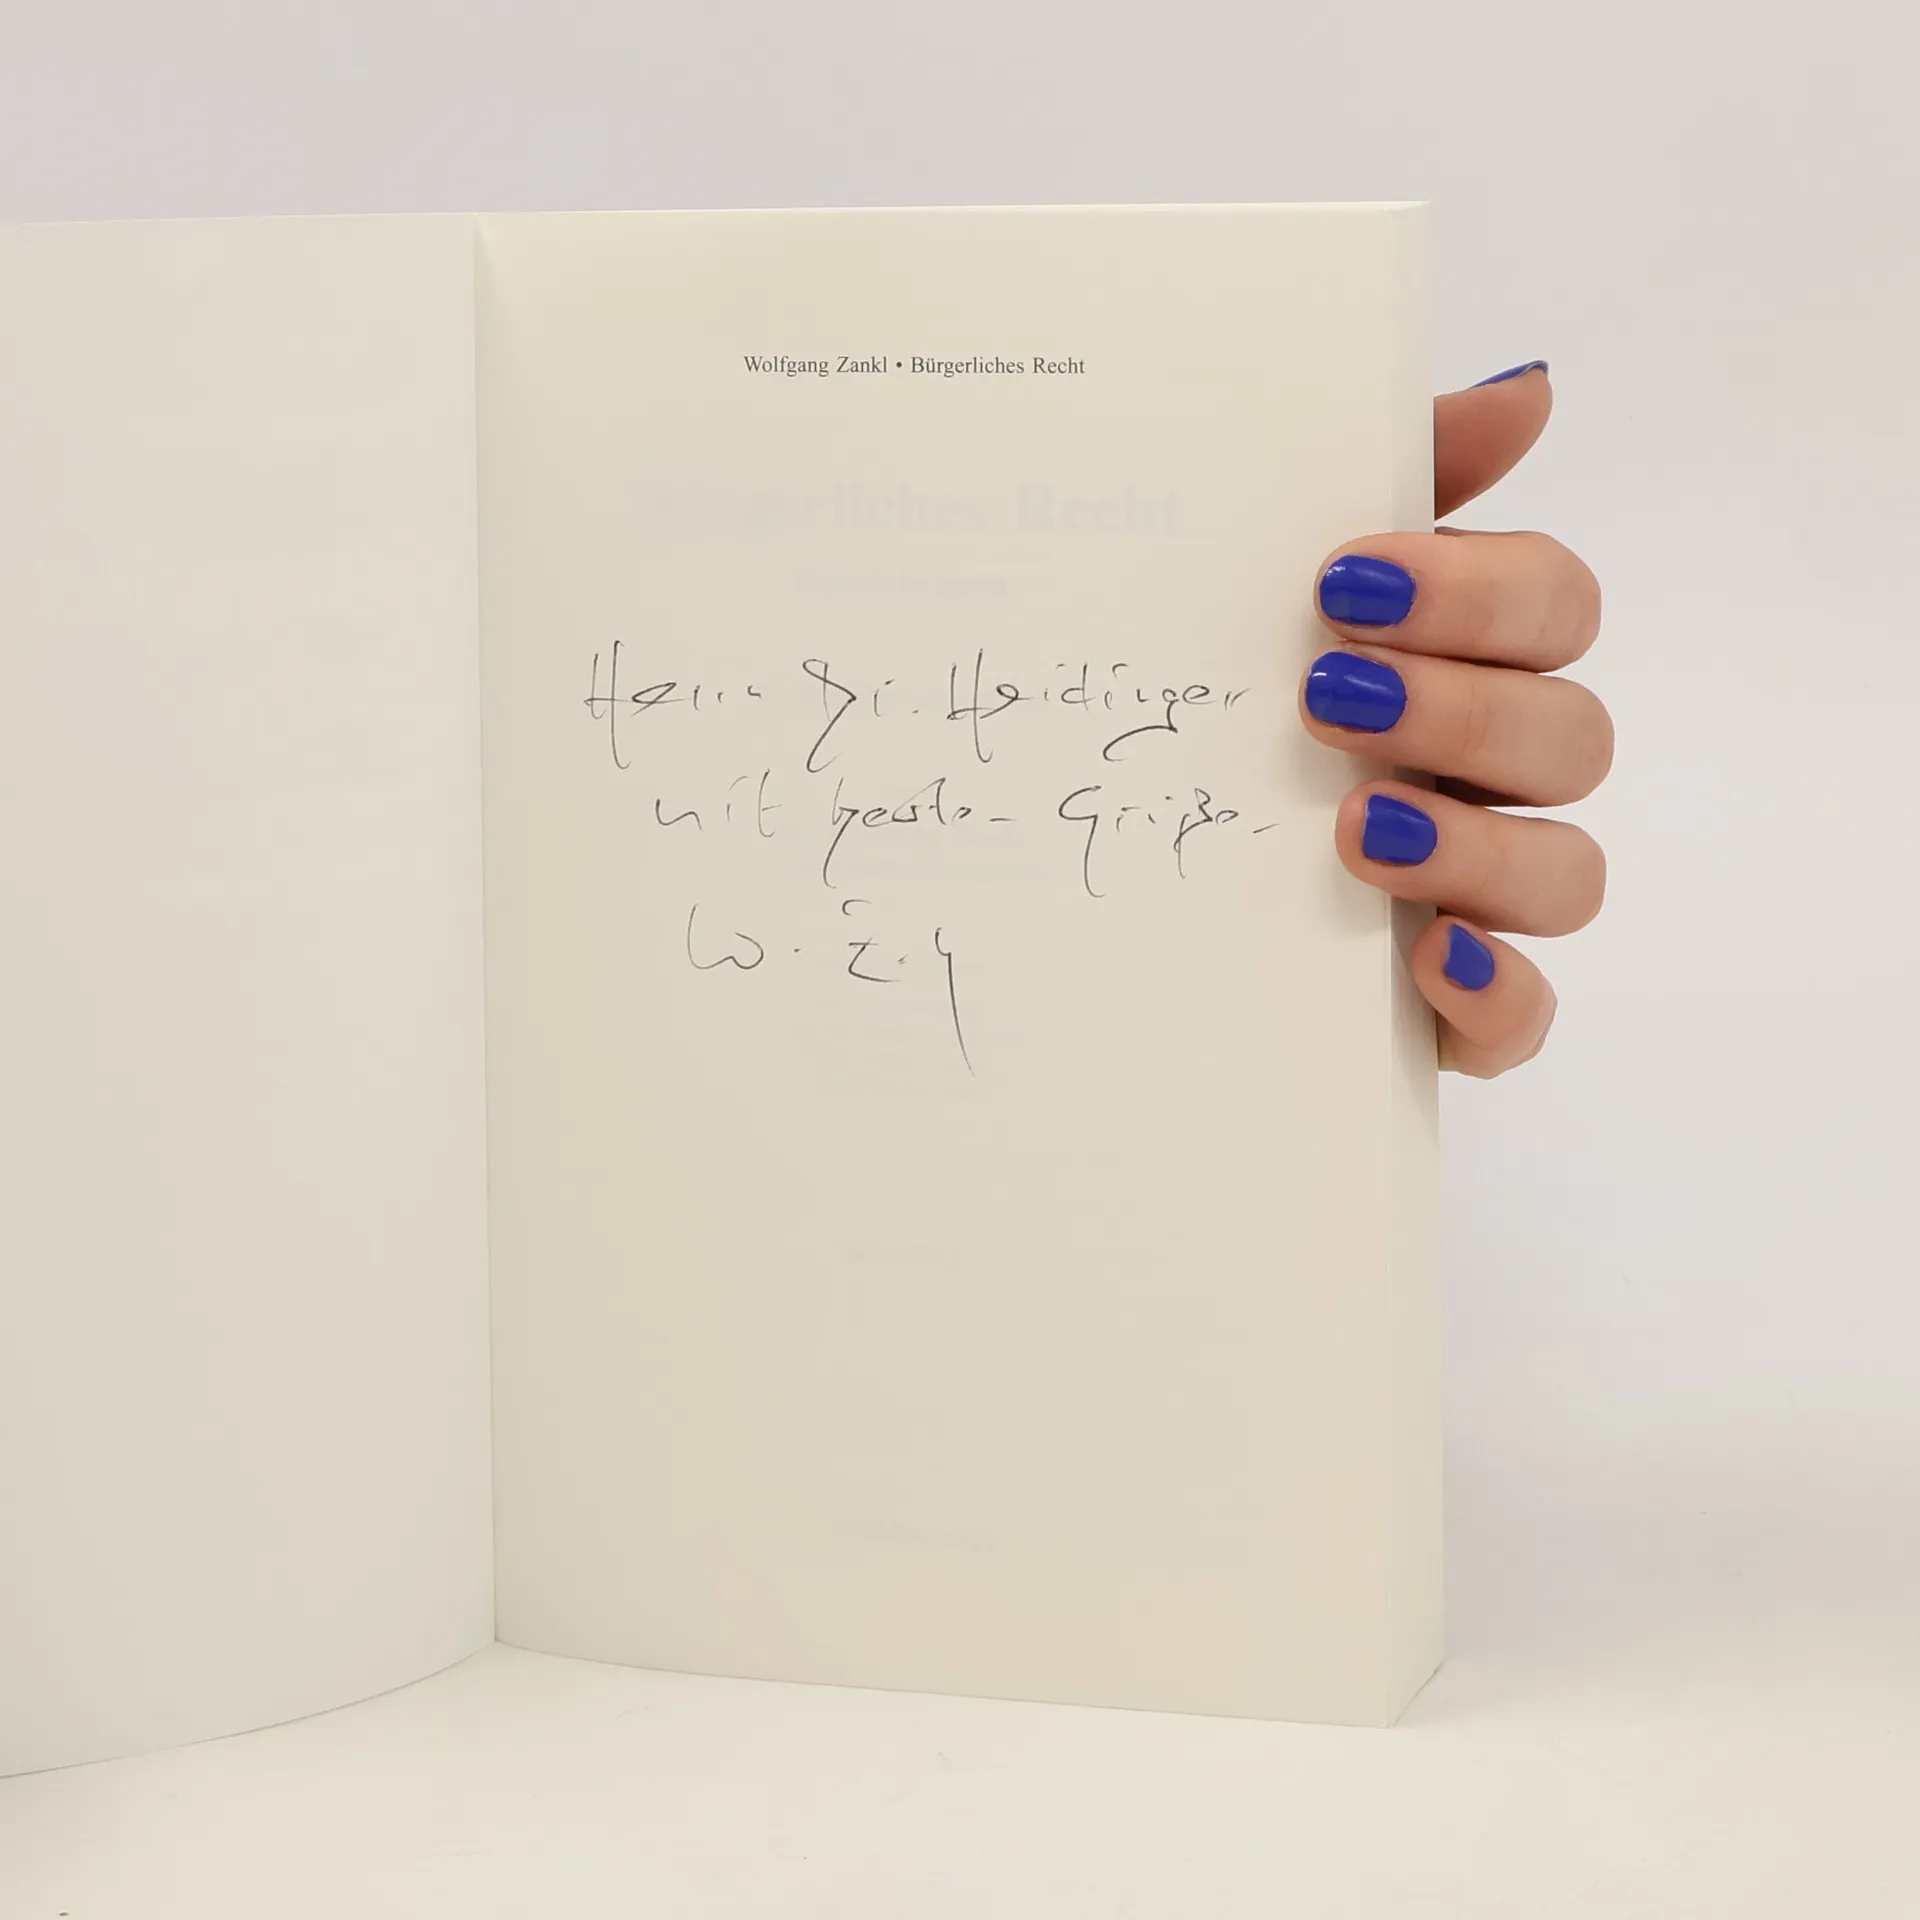 Wolfgang Zankl • Bürgerliches Recht
Herrn Dr. Heidinger
mit besten Grüßen
W. Z